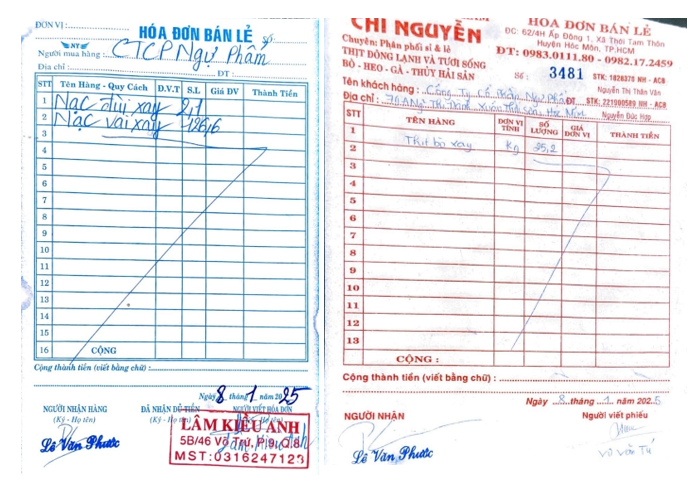 ĐƠN VỊ :
HÓA ĐƠN BÁN LẺ Số
NY
Người mua hàng : CTCP Ngự Phẩm
Địa chỉ : ĐT :
STT Tên Hàng - Quy Cách Đ.V.T S.L Giá ĐV Thành Tiền
1 Nạc đùi xay 2,1
2 Nạc vai xay 126,6
3
4
5
6
7
8
9
10
11
12
13
14
15
16 CỘNG
Cộng thành tiền (viết bằng chữ) :
Ngày 8 tháng 1 năm 2025
NGƯỜI NHẬN HÀNG ĐÃ NHẬN ĐỦ TIỀN NGƯỜI VIẾT HÓA ĐƠN
(Ký - Họ tên) (Ký - Họ tên)
LÂM KIỀU ANH
5B/46 Võ Trứ, P.9, Q.8
MST:0316247123
Lê Văn Phước
CHI NGUYỄN
Chuyên: Phân phối sỉ & lẻ
THỊT ĐÔNG LẠNH VÀ TƯƠI SỐNG
BÒ - HEO - GÀ - THỦY HẢI SẢN
HÓA ĐƠN BÁN LẺ
ĐC: 62/4H Ấp Đông 1, Xã Thới Tam Thôn
Huyện Hóc Môn, TP.HCM
ĐT: 0983.0111.80 - 0982.17.2459
Số : 3481 STK: 1820375 NH - ACB
Nguyễn Thị Thân Vân
Tên khách hàng : Công Ty Cổ Phần Ngự Phẩm ĐT STK: 221900589 NH - ACB
Địa chỉ : Nguyễn Đức Hợp
STT TÊN HÀNG ĐƠN VỊ TÍNH SỐ LƯỢNG GIÁ ĐƠN VỊ THÀNH TIỀN
1
2 Thịt bò xay Kg 25,2
3
4
5
6
7
8
9
10
11
12
13
CỘNG :
Cộng thành tiền (viết bằng chữ) :
Ngày 8 tháng 1 năm 2025
NGƯỜI NHẬN Người viết phiếu
Lê Văn Phước Võ Văn Tú